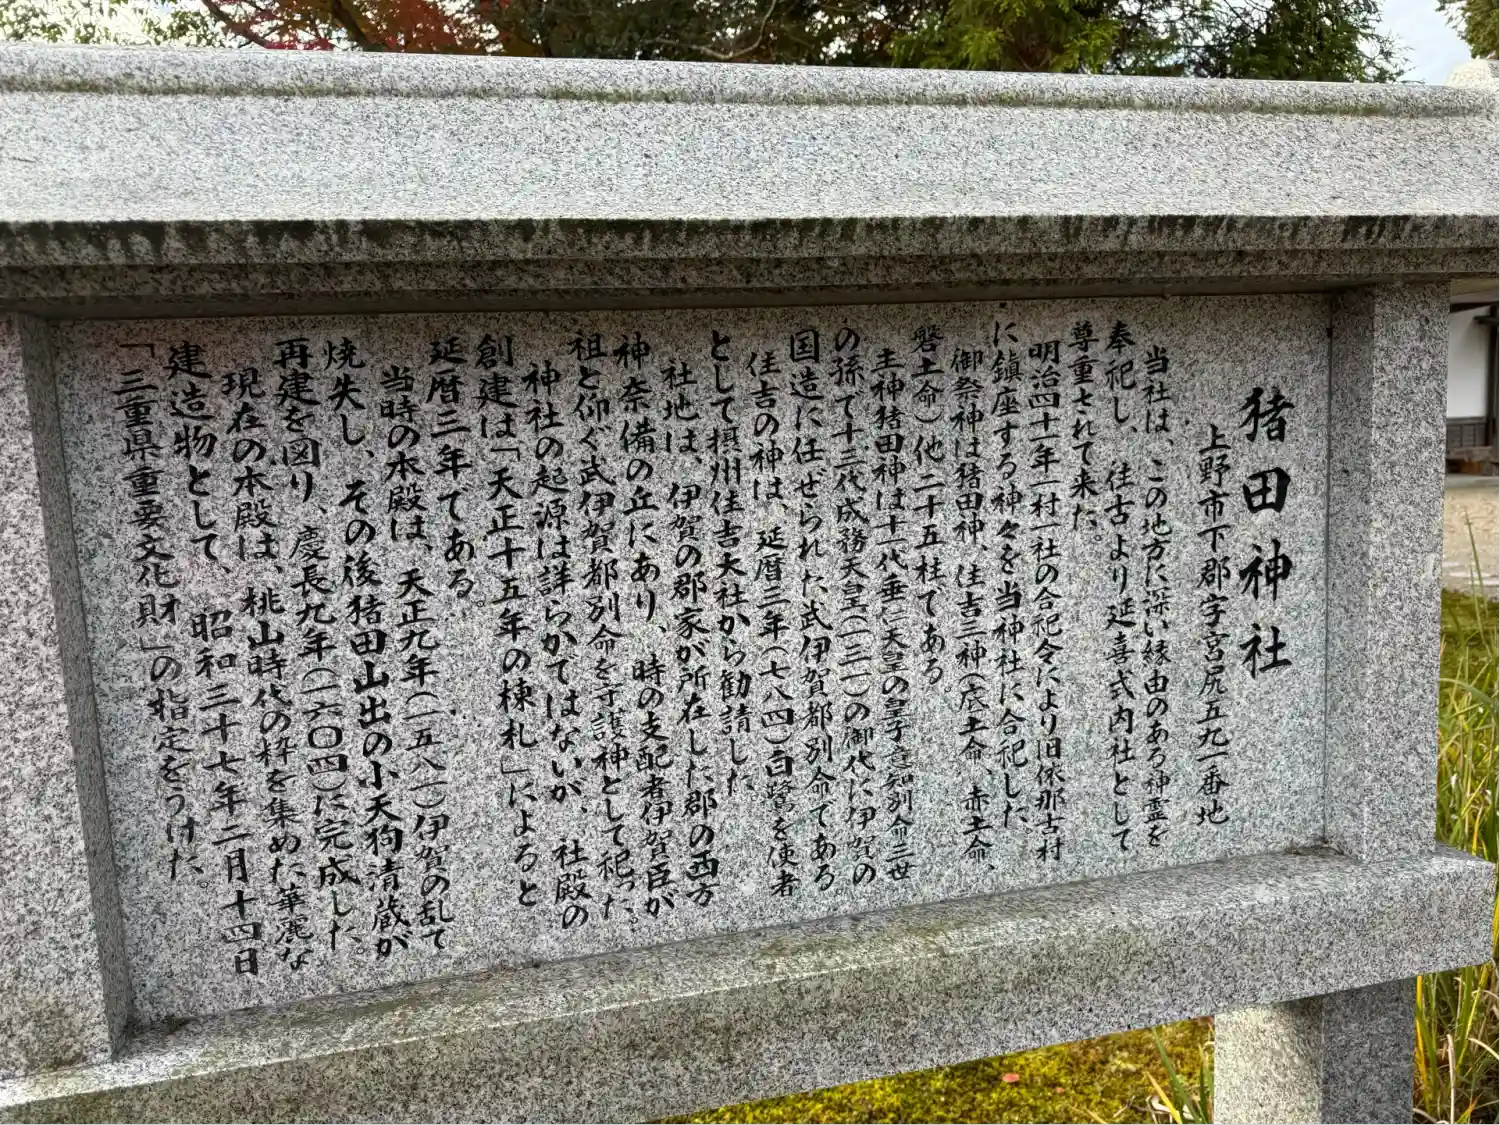 猪田神社
上野市下郡字宮尻五九一番地
当社は、この地方に深い縁由のある神霊を
奉祀し、往古より延喜式内社として
尊重されて来た。
明治四十一年一村一社の合祀令により旧依那古村
に鎮座する神々を当神社に合祀した。
御祭神は猪田神、住吉三神(底土命、赤土命、
磐土命)他二十五柱である。
主神猪田神は十一代垂仁天皇の皇子意知別命三世
の孫で十三代成務天皇(一三一)の御代に伊賀の
国造に任ぜられた武伊賀都別命である
住吉の神は、延暦三年(七八四)白鷺を使者
として摂州住吉大社から勧請した。
社地は、伊賀の郡家が所在した郡の西方
神奈備の丘にあり、時の支配者伊賀臣が
祖と仰ぐ武伊賀都別命を守護神として祀った。
神社の起源は詳らかではないが、社殿の
創建は「天正十五年の棟札」によると
延暦三年である。
当時の本殿は、天正九年(一五八一)伊賀の乱て
焼失し、その後猪田山出の小天狗清蔵が
再建を図り、慶長九年(一六〇四)に完成した。
現在の本殿は、桃山時代の粋を集めた華麗な
建造物として、昭和三十七年二月十四日
「三重県重要文化財」の指定をうけた。